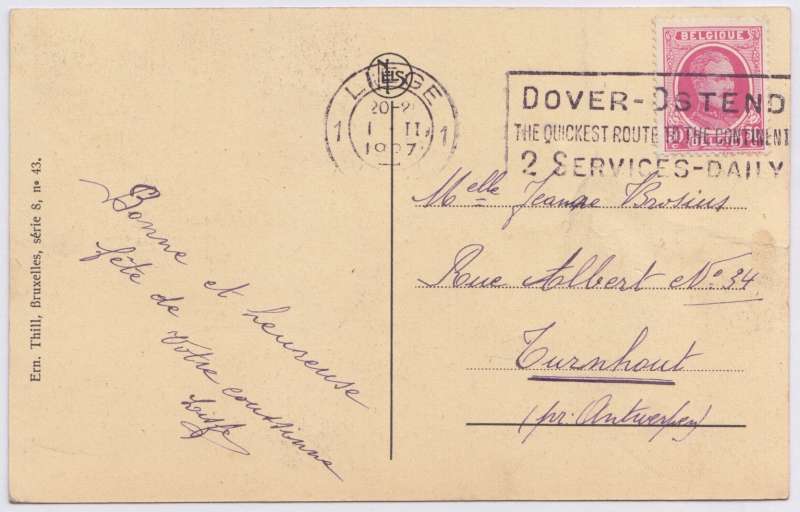 BELGIQUE
LIEGE
NELS
1
20-2
1
I II
1927
DOVER-OSTEND
THE QUICKEST ROUTE TO THE CONTINENT
2 SERVICES-DAILY
Melle Jeanne Brosius
Rue Albert No 34
Turnhout
(pr. Antwerpen)
Bonne et heureuse
fête de
Votre coussinne
Ern. Thill, Bruxelles, série 8, no 43.